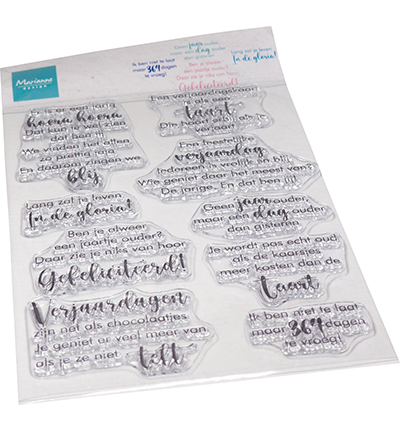 Marianne
DESIGN
Geen jaar ouder,
maar een dag ouder
dan gisteren
Ik ben niet te laat
maar 364 dagen
te vroeg!
Lang zal je leven
In de gloria!
Ben je alweer
een jaartje ouder?
Daar zie je niks van hoor
Gefeliciteerd!
Er is er een jarig
hoera hoera
Dat kan je wel zien
dat ben jij
We vinden het allen
zo prettig
En daarom zingen we
blij
Een verjaardagskaart
als een
taart
Die hoort erbij als je
verjaart
Een feestelijke
verjaardag
Iedereen is vrolijk en blij
Wie geniet daar het meest van?
De jarige. En dat ben jij
Lang zal je leven
In de gloria!
Geen jaar ouder,
maar een dag ouder
dan gisteren
Ben je alweer
een jaartje ouder?
Daar zie je niks van hoor
Gefeliciteerd!
Je wordt pas echt oud
als de kaarsjes
meer kosten dan de
taart
Verjaardagen
zijn net als chocolaatjes
Je geniet er veel meer van
als je ze niet
telt
Ik ben niet te laat
maar 364 dagen
te vroeg!